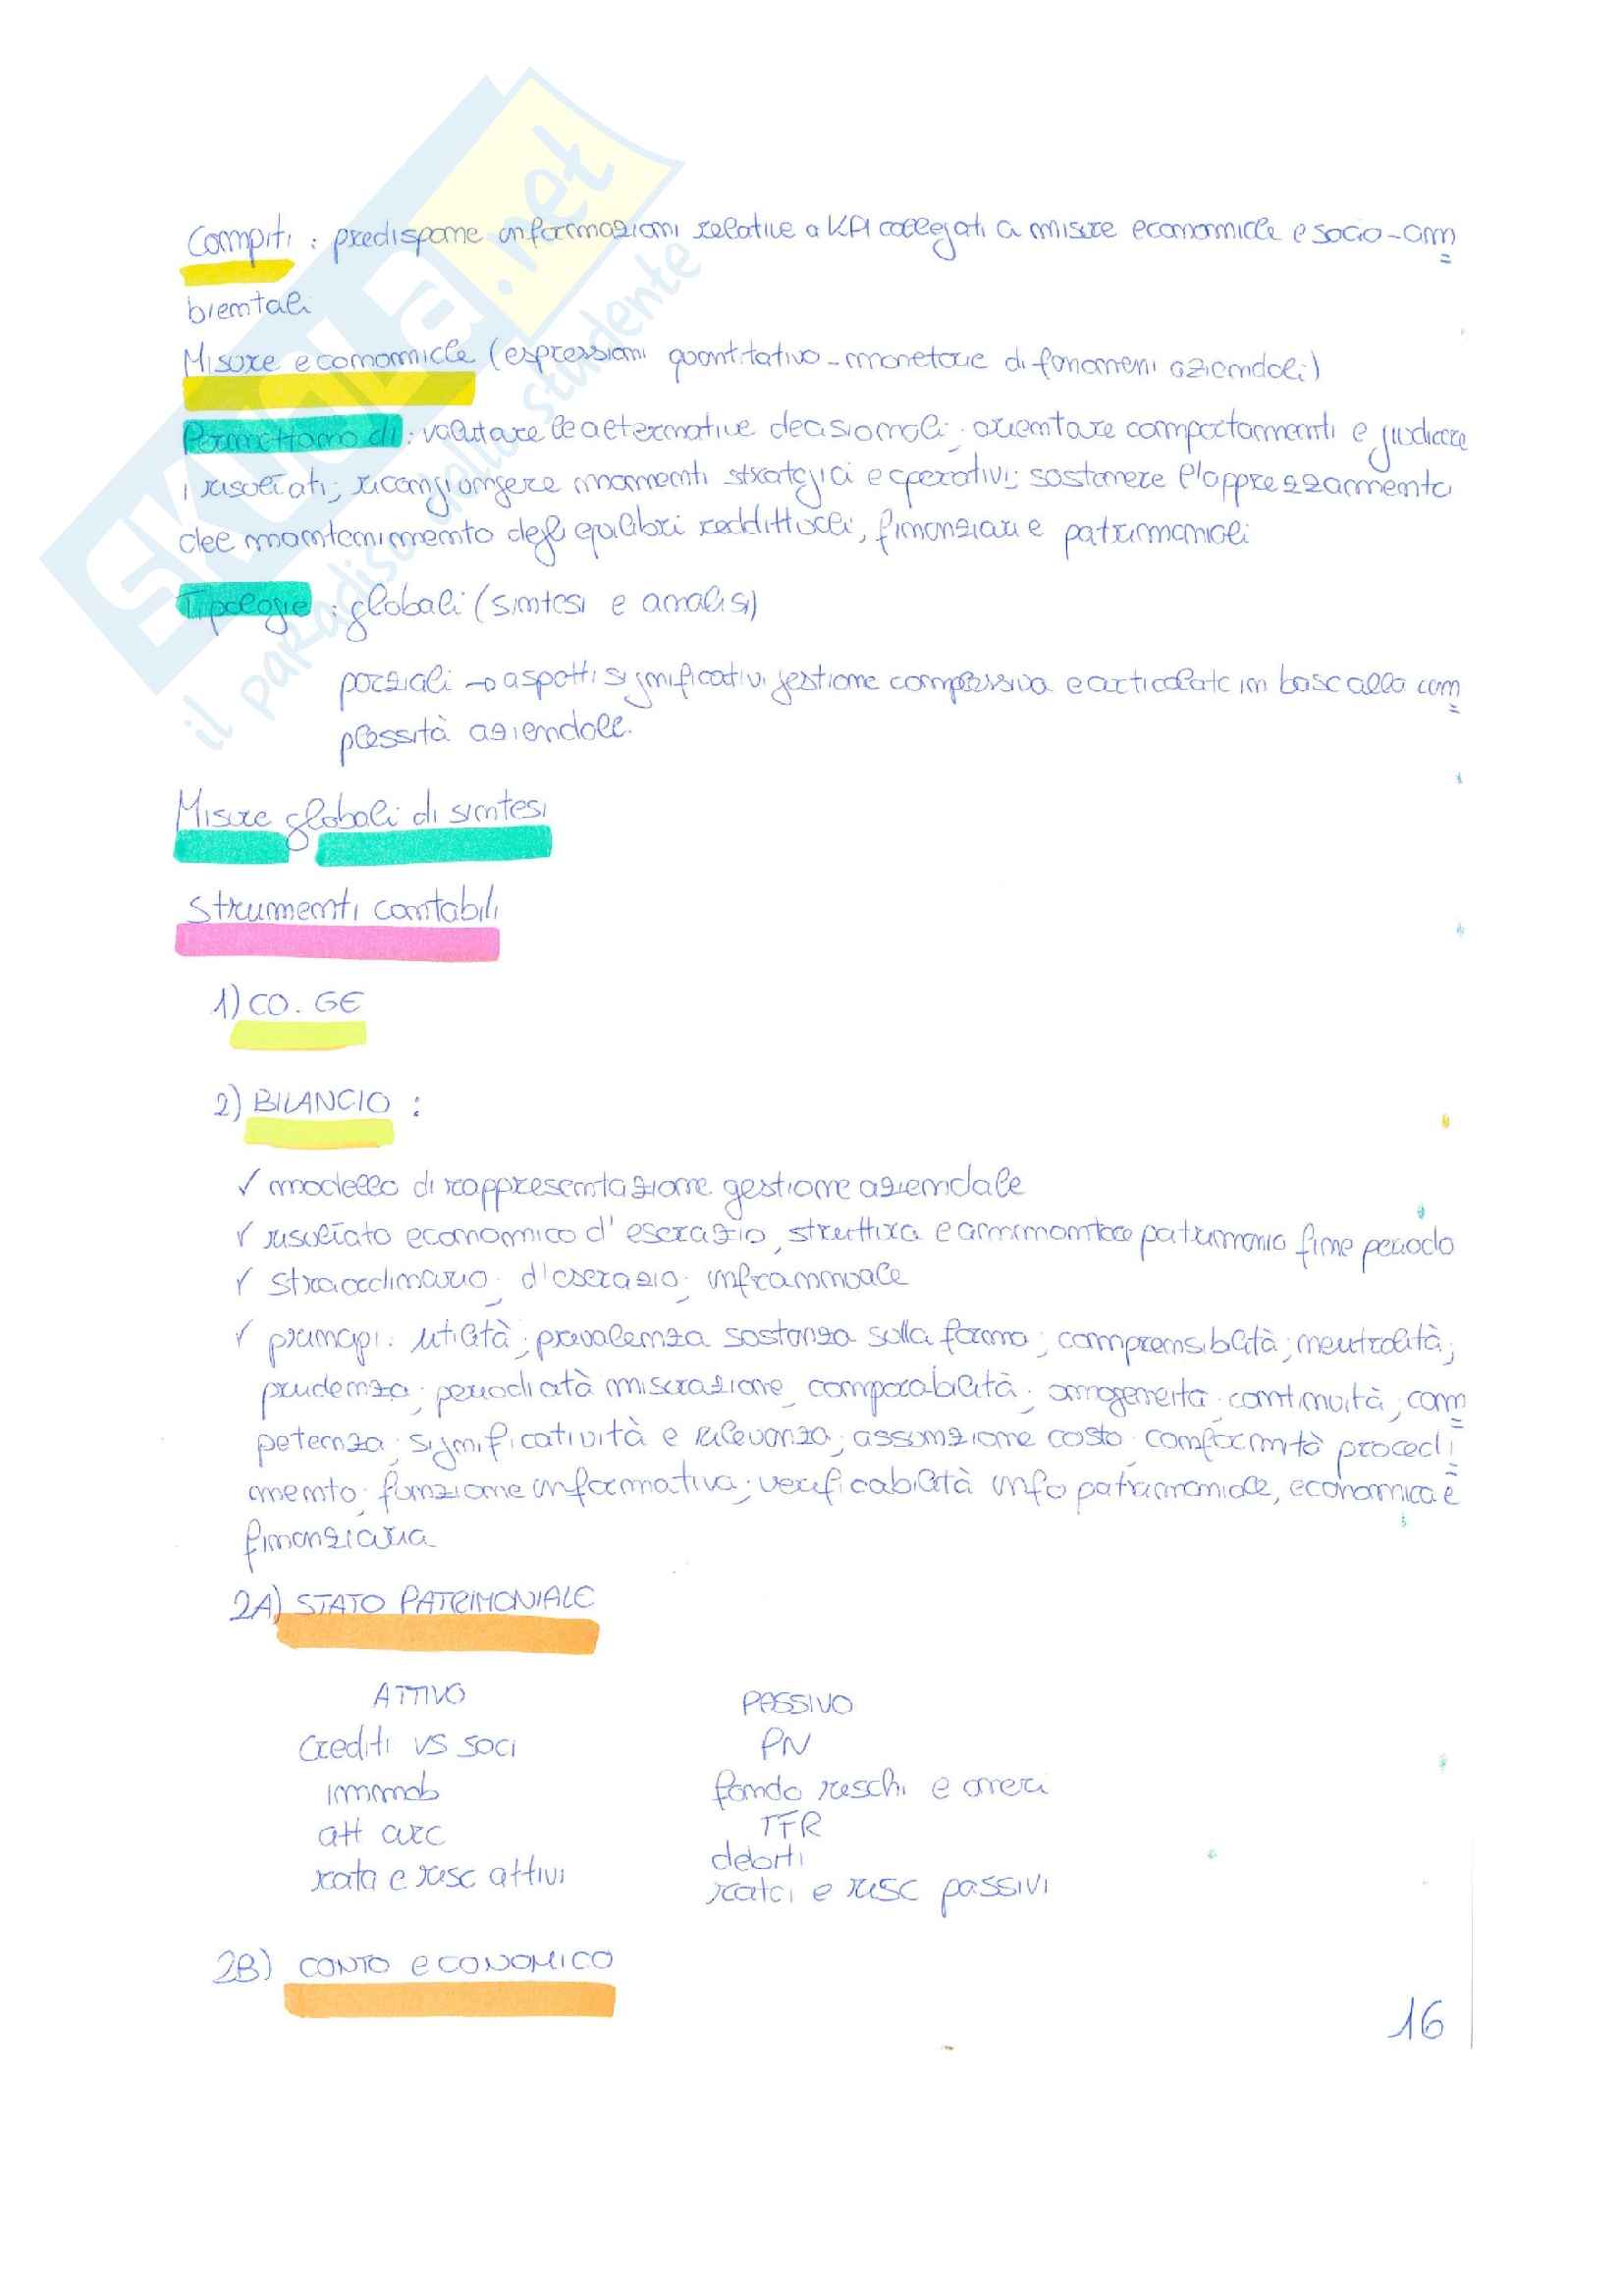 SKUOLA.net
il paradiso dello studente
Compiti : predispone informazioni relative a KPI collegati a misure economiche e socio-am
bientali
Misure economiche (espressioni quantitativo-monetarie di fenomeni aziendali)
Permettono di : valutare le alternative decisionali; orientare comportamenti e giudicare
i risultati; ricongiungere momenti strategici e operativi; sostenere l'apprezzamento
del mantenimento degli equilibri reddittuali, finanziari e patrimoniali
Tipologie : globali (sintesi e analisi)
parziali → aspetti significativi gestione complessiva e articolate in base alla com
plessità aziendale.
Misure globali di sintesi
Strumenti contabili
1) CO. GE
2) BILANCIO :
✓ modello di rappresentazione gestione aziendale
✓ risultato economico d'esercizio, struttura e ammontare patrimonio fine periodo
✓ straordinario; d'esercizio; infrannuale
✓ principi: utilità; prevalenza sostanza sulla forma; comprensibilità; neutralità;
prudenza; periodicità misurazione; comparabilità; omogeneità; continuità; com
petenza; significatività e rilevanza; assunzione costo; conformità procedi
mento; funzione informativa; verificabilità info patrimoniale, economica e
finanziaria
2A) STATO PATRIMONIALE
ATTIVO PASSIVO
Crediti vs soci PN
immob fondo rischi e oneri
att circ TFR
ratei e risc attivi debiti
ratei e risc passivi
2B) CONTO eCONOMICO
16